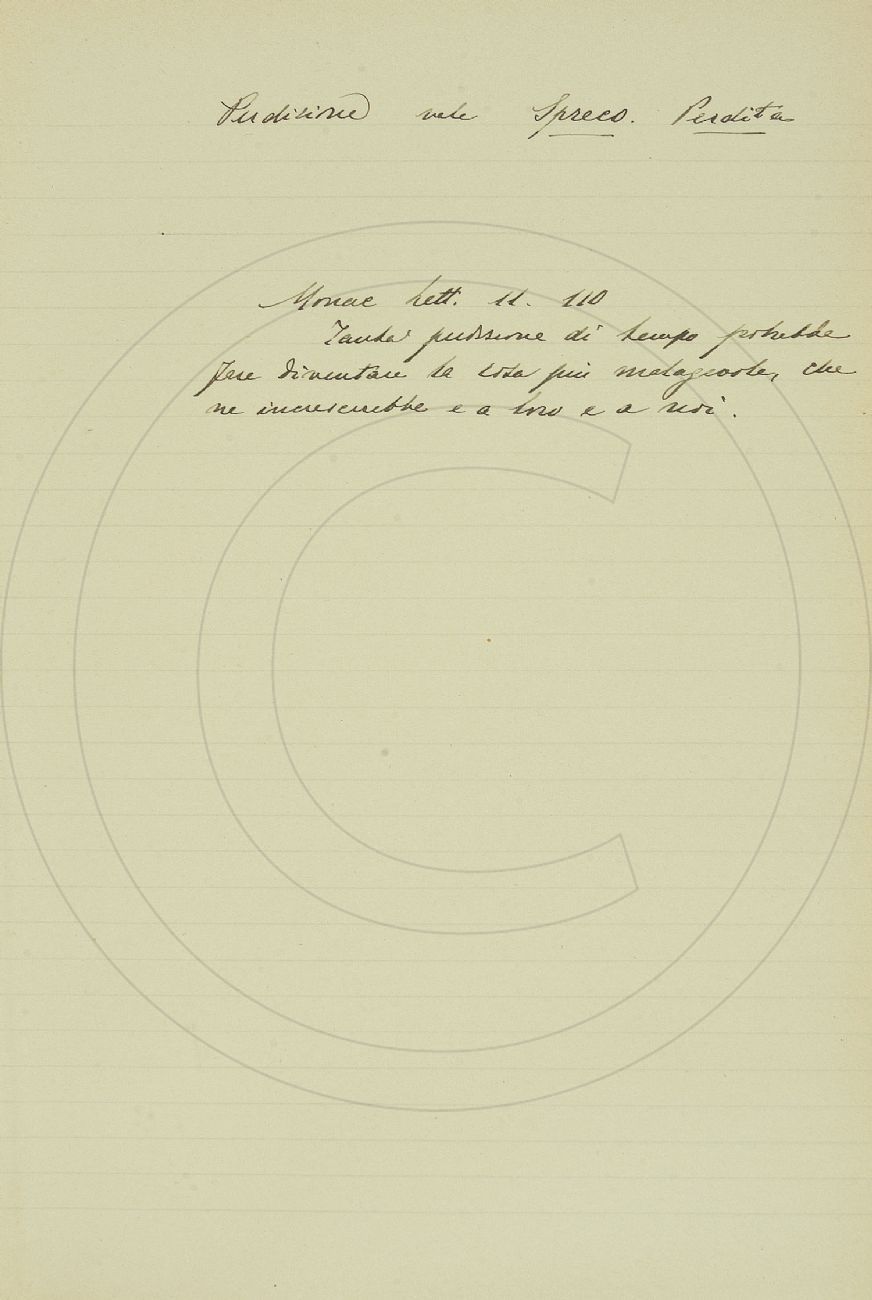 Perdizione vale Spreco. Perdita
Monac Lett. 11. 110
Tanta perdizione di tempo potrebbe
fare diventare la cosa più malagevole, che
ne increscerebbe e a loro e a noi.